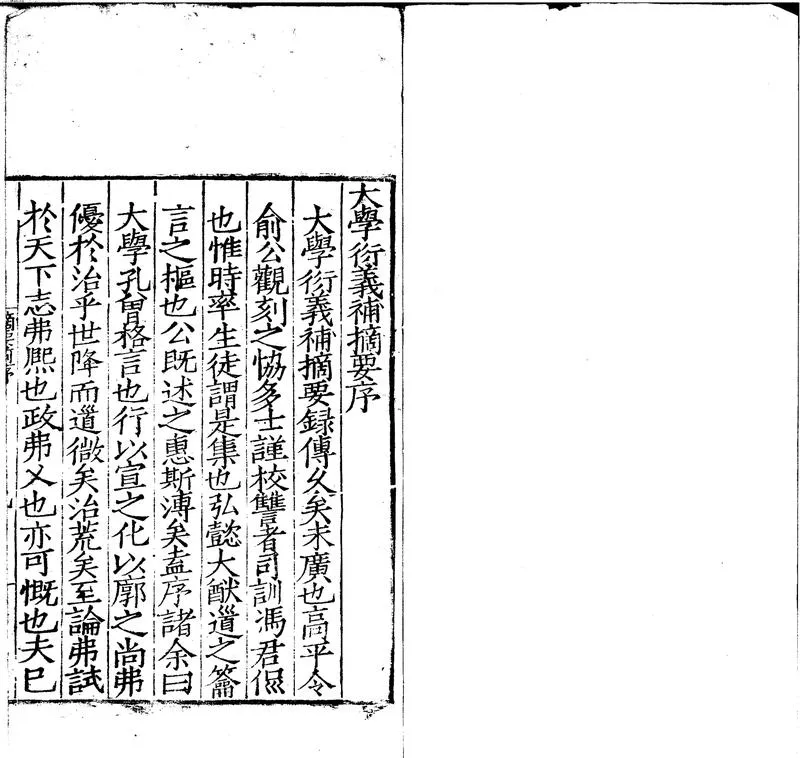 大學衍義補摘要序
大學衍義補摘要録傳乆矣未廣也高平令
俞公觀刻之恊多士謹校讐者司訓馮君㷛
也惟時率生徒謂是集也弘懿大猷道之籥
言之樞也公既述之惠斯溥矣盍序諸余曰
大學孔曾格言也行以宣之化以廓之尚弗
優於治乎世降而道微矣治荒矣至論弗試
於天下志弗熈也政弗乂也亦可慨也夫巳